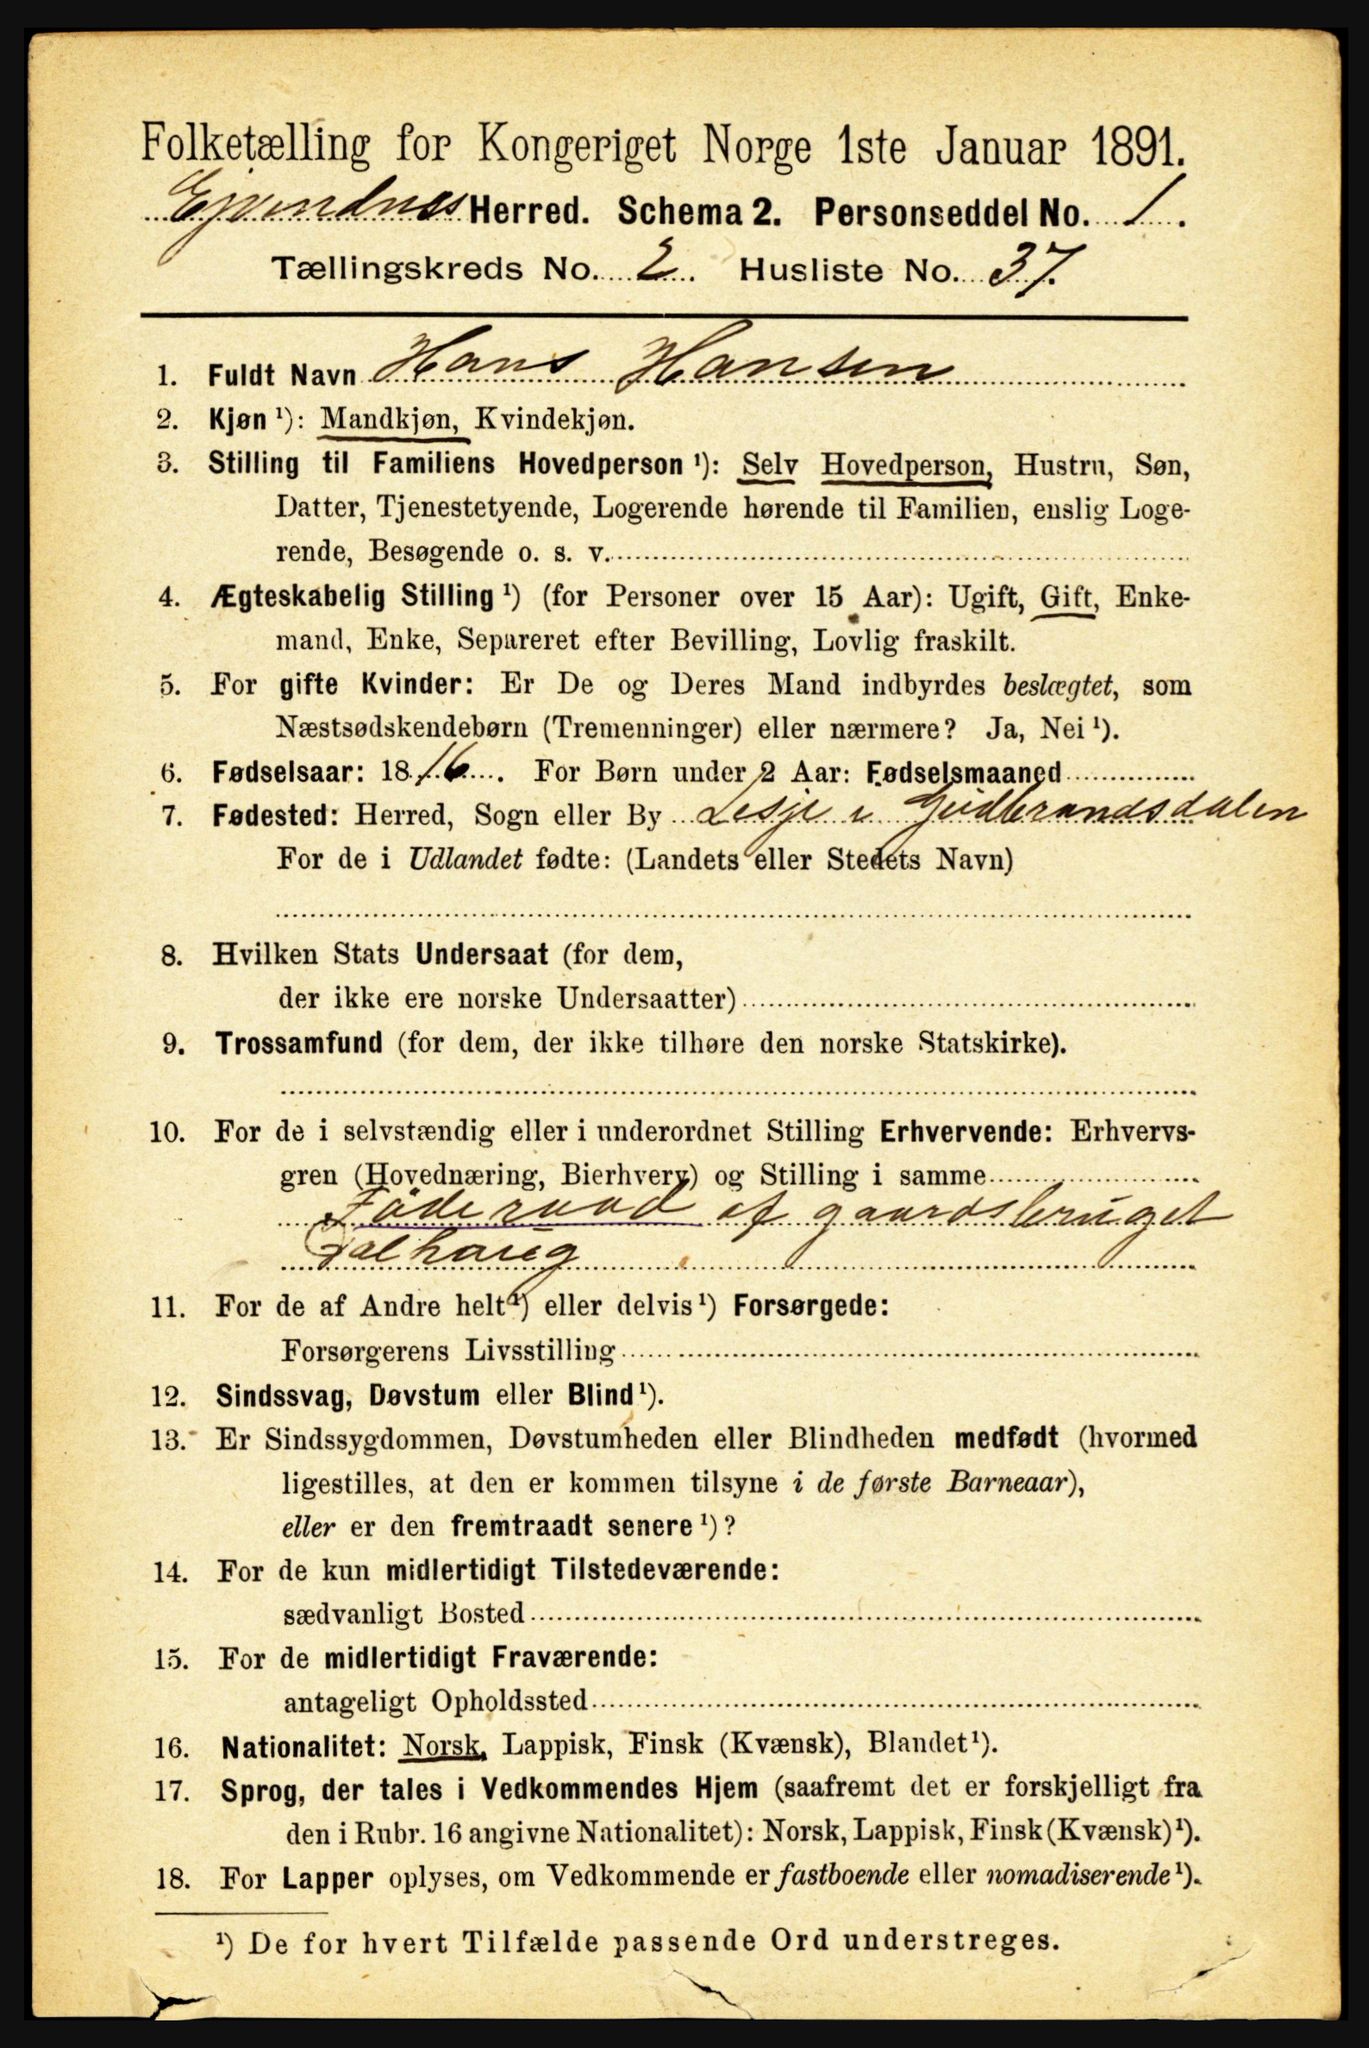 Folketælling for Kongeriget Norge 1ste Januar 1891.
Ejvindvig Herred. Schema 2. Personseddel No. 1.
Tællingskreds No. 2. Husliste No. 37.
1. Fuldt Navn Hans Hansen
2. Kjøn ¹): Mandkjøn, Kvindekjøn.
3. Stilling til Familiens Hovedperson ¹): Selv Hovedperson, Hustru, Søn,
Datter, Tjenestetyende, Logerende hørende til Familien, enslig Loge-
rende, Besøgende o. s. v.
4. Ægteskabelig Stilling ¹) (for Personer over 15 Aar): Ugift, Gift, Enke-
mand, Enke, Separeret efter Bevilling, Lovlig fraskilt.
5. For gifte Kvinder: Er De og Deres Mand indbyrdes beslægtet, som
Næstsødskendebørn (Tremenninger) eller nærmere? Ja, Nei ¹).
6. Fødselsaar: 1816. For Børn under 2 Aar: Fødselsmaaned
7. Fødested: Herred, Sogn eller By Lesje i Gudbrandsdalen
For de i Udlandet fødte: (Landets eller Stedets Navn)
8. Hvilken Stats Undersaat (for dem,
der ikke ere norske Undersaatter)
9. Trossamfund (for dem, der ikke tilhøre den norske Statskirke).
10. For de i selvstændig eller i underordnet Stilling Erhvervende: Erhvervs-
gren (Hovednæring, Bierhverv) og Stilling i samme
Föderaad af gaardsbruget
Dalhaug
11. For de af Andre helt ¹) eller delvis ¹) Forsørgede:
Forsørgerens Livsstilling
12. Sindssvag, Døvstum eller Blind ¹).
13. Er Sindssygdommen, Døvstumheden eller Blindheden medfødt (hvormed
ligestilles, at den er kommen tilsyne i de første Barneaar),
eller er den fremtraadt senere ¹)?
14. For de kun midlertidigt Tilstedeværende:
sædvanligt Bosted
15. For de midlertidigt Fraværende:
antageligt Opholdssted
16. Nationalitet: Norsk, Lappisk, Finsk (Kvænsk), Blandet ¹).
17. Sprog, der tales i Vedkommendes Hjem (saafremt det er forskjelligt fra
den i Rubr. 16 angivne Nationalitet): Norsk, Lappisk, Finsk (Kvænsk) ¹).
18. For Lapper oplyses, om Vedkommende er fastboende eller nomadiserende ¹).
¹) De for hvert Tilfælde passende Ord understreges.